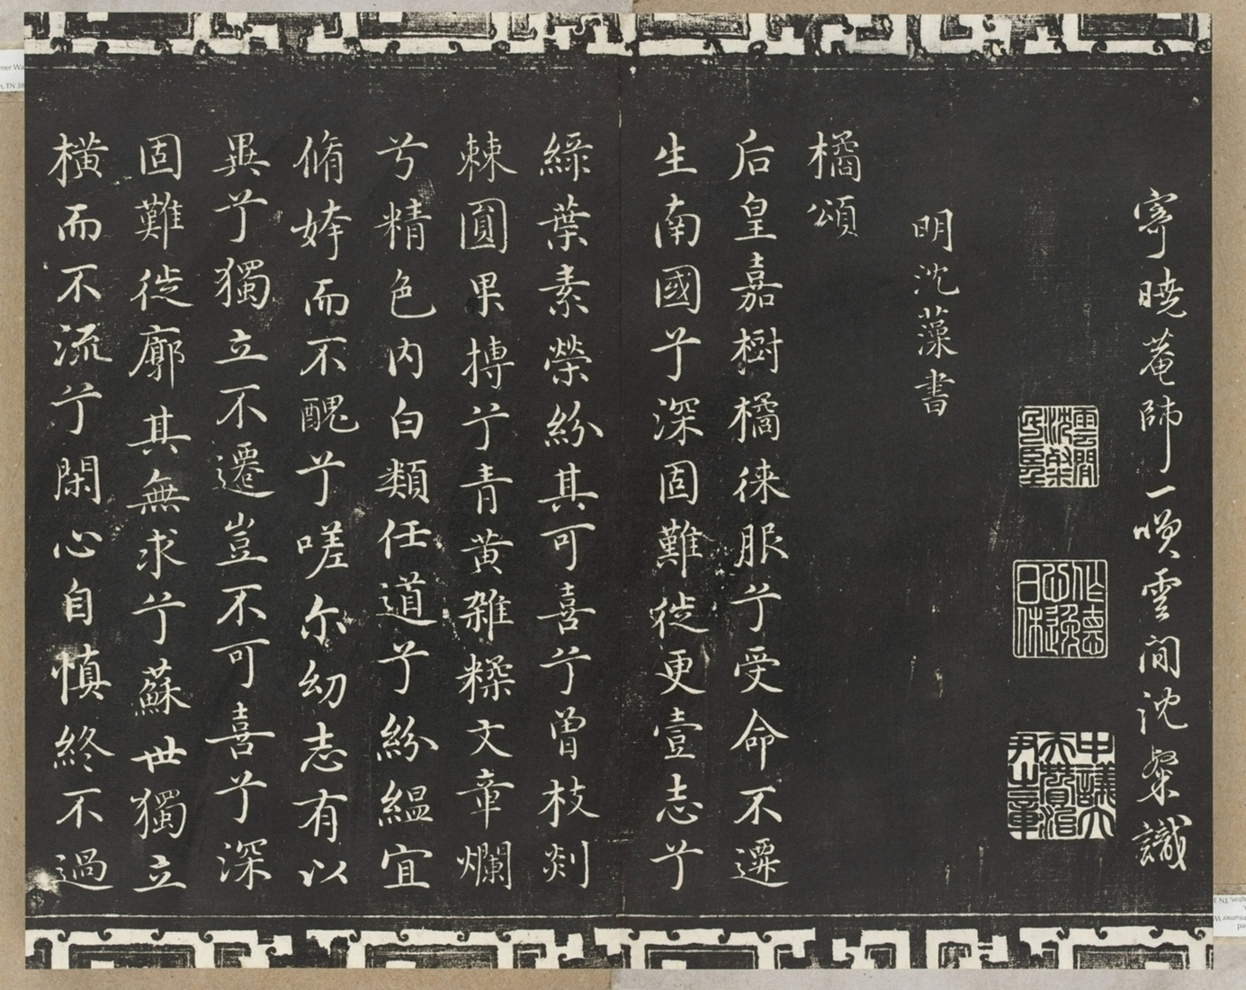 寄曉菴師一噗雲間沈粲識
雲間沈粲民望
作德心逸日休
中議大夫贊治尹章
明沈藻書
橘頌
后皇嘉樹橘徠服兮受命不遷
生南國兮深固難徙更壹志兮
綠葉素榮紛其可喜兮曾枝剡
棘圓果摶兮青黃雜糅文章爛
兮精色內白類任道兮紛緼宜
脩姱而不醜兮嗟尔幼志有以
異兮獨立不遷豈不可喜兮深
固難徙廓其無求兮蘇世獨立
橫而不流兮閑心自慎終不過